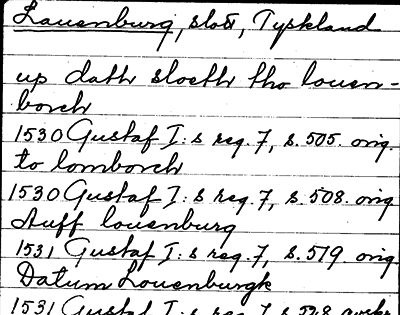 Lauenburg, slott, Tyskland
up dath sloeth tho louen-
borch
1530 Gustaf I:s reg. 7, s. 505. orig.
to lomborch
1530 Gustaf I:s reg. 7, s. 508. orig
Auff louenburg
1531 Gustaf I:s reg. 7, s. 519 orig
Datum Louenburgk
1531 Gustaf I:s reg. 7 s.